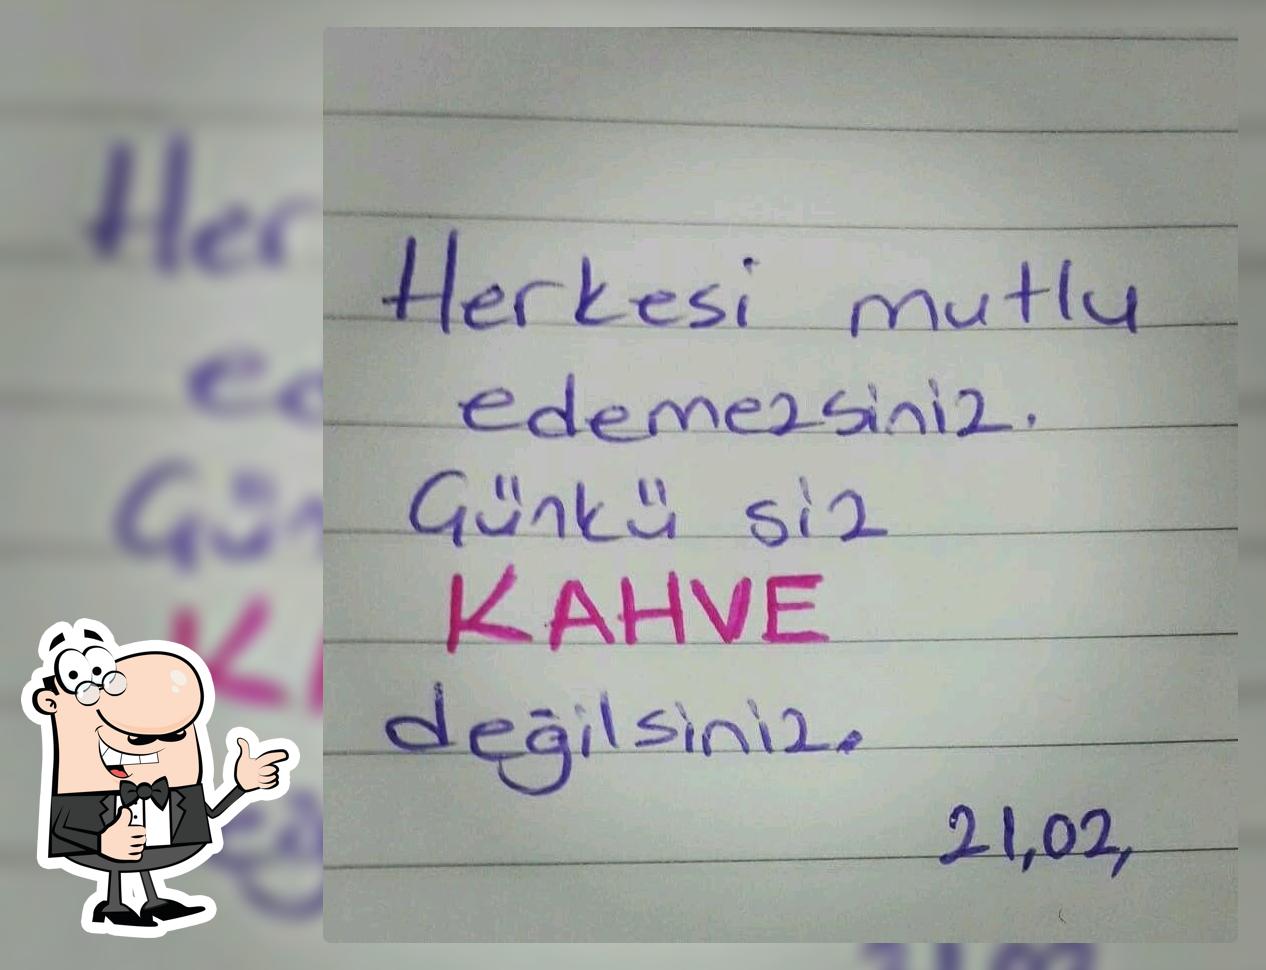 Herkesi mutlu
edemezsiniz.
Günkü siz
KAHVE
değilsiniz.
21,02,